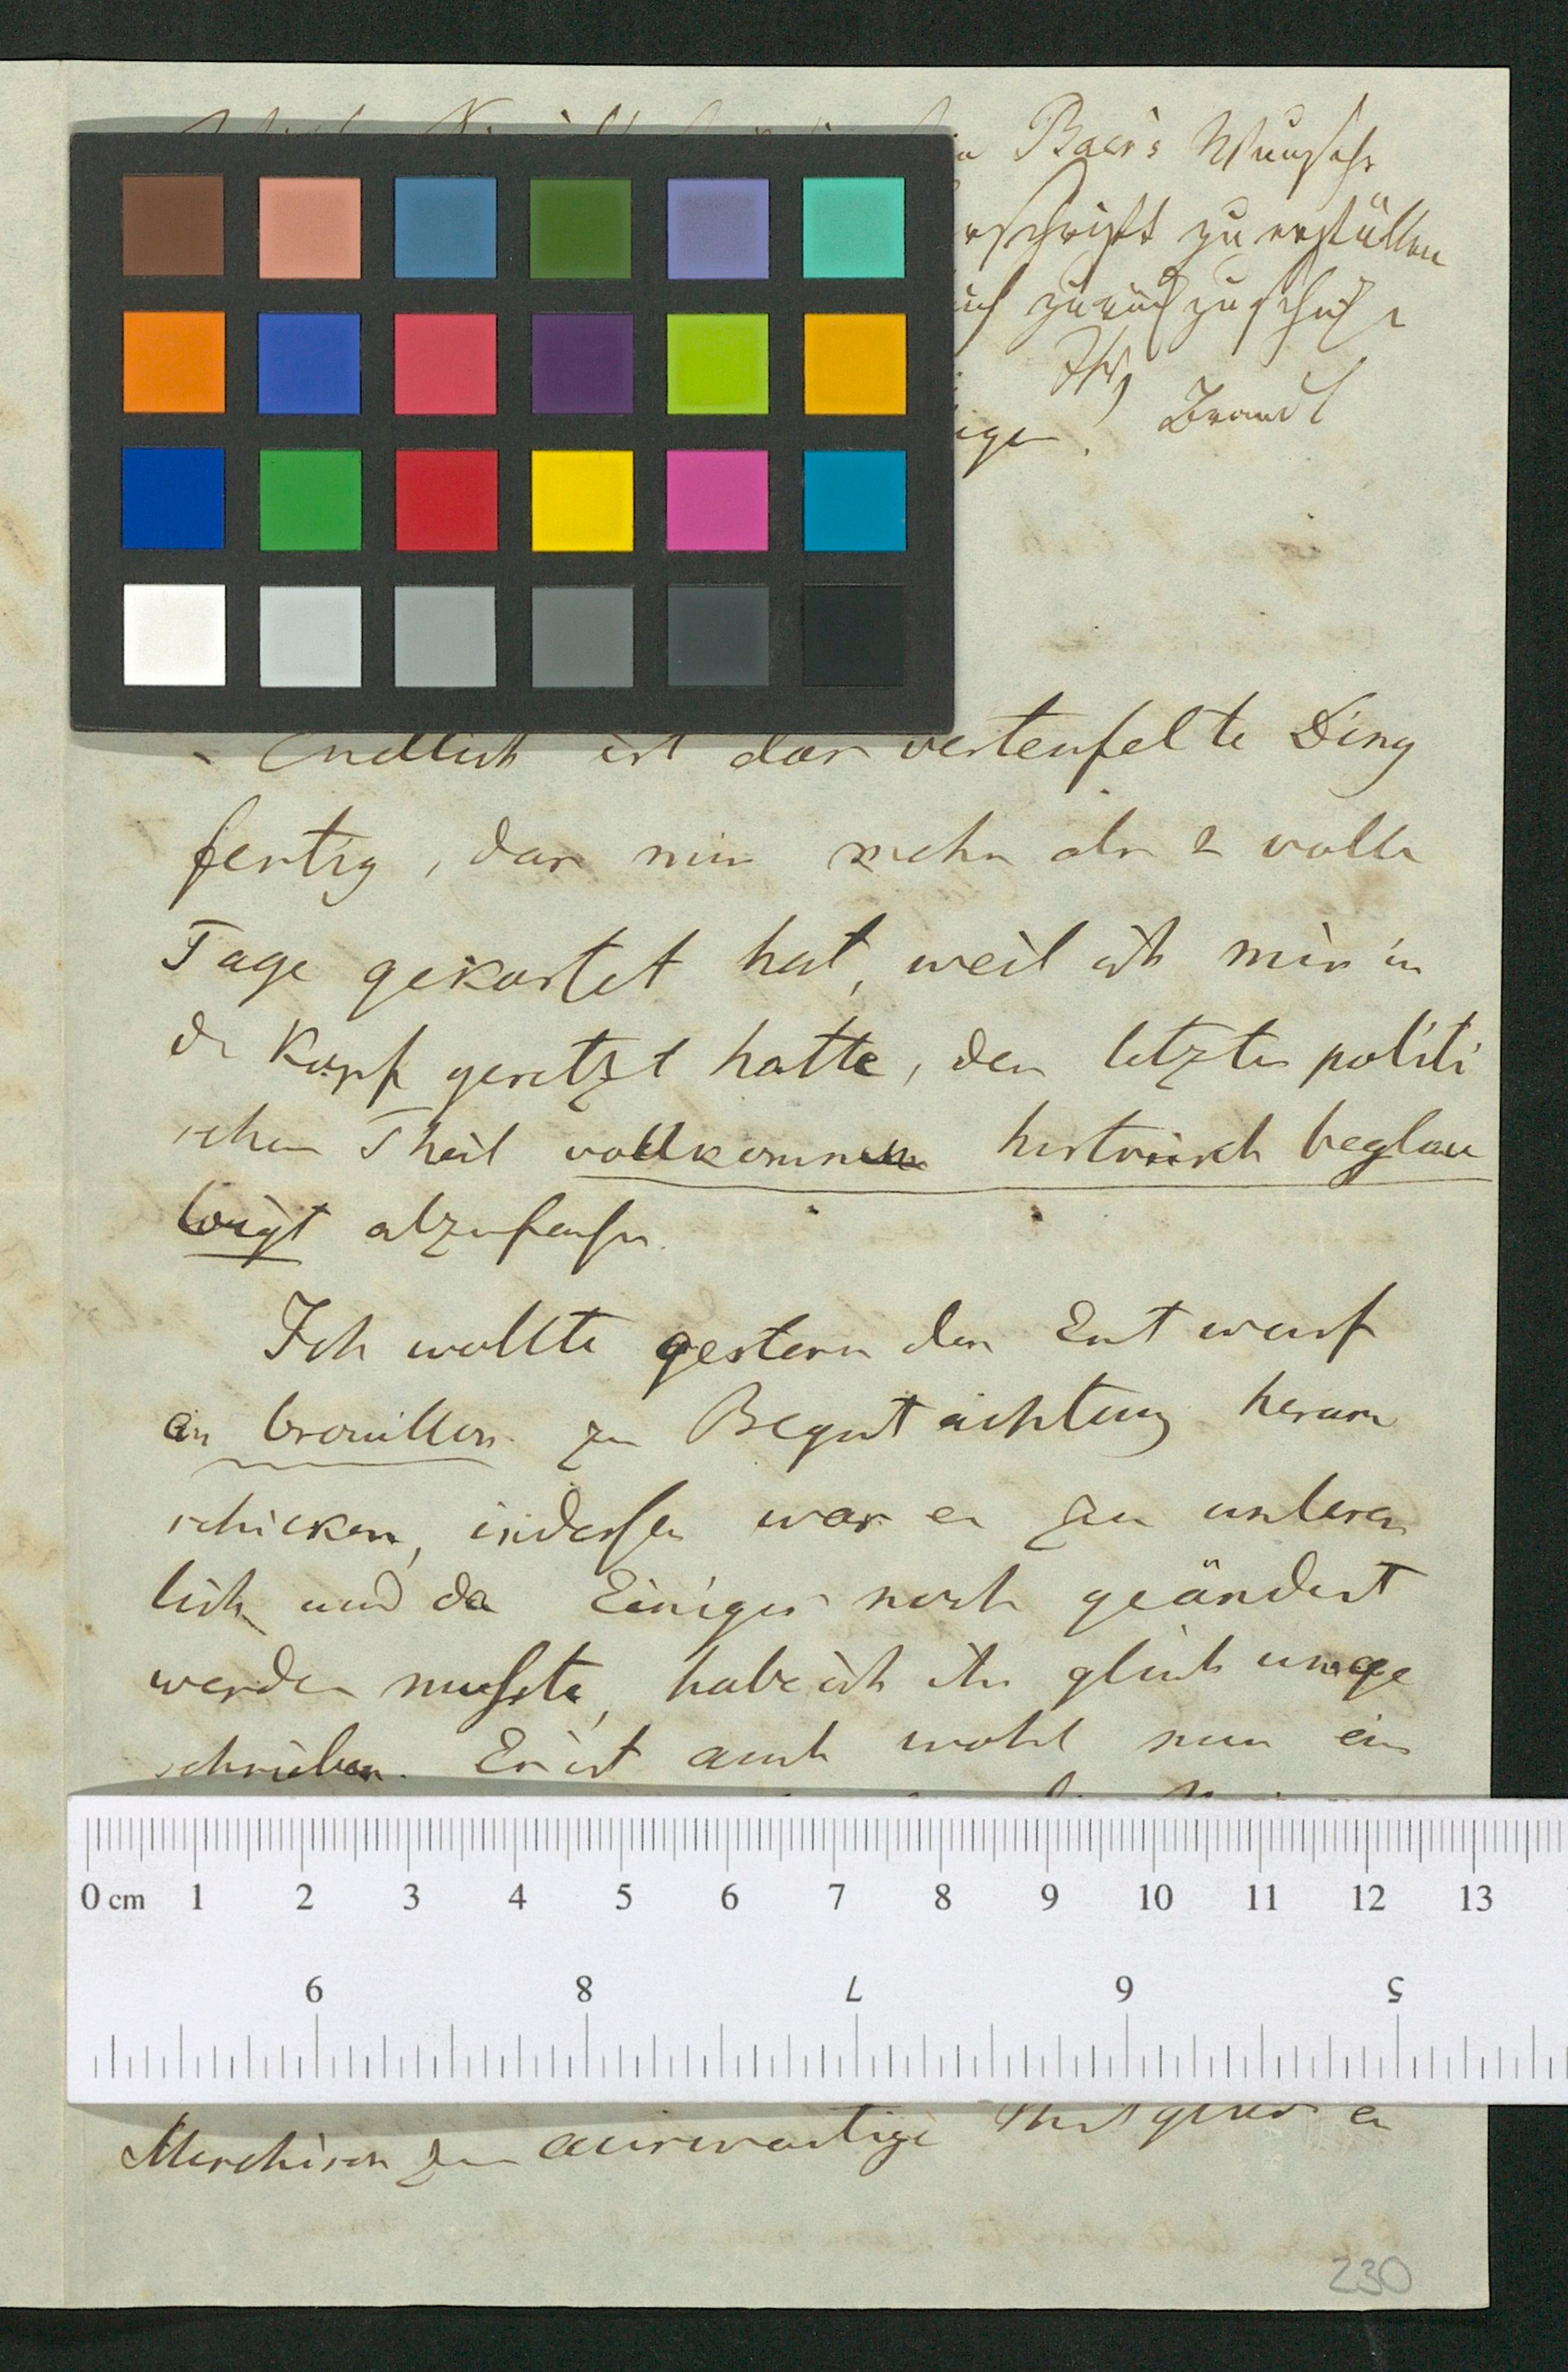 Baer's Wunsche
rschrift zu erfüllen
zurückzuschicke
Ihr
Brandt
Endlich ist das verteufelte Ding
fertig, das mir mehr als 2 volle
Tage gekostet hat, weil ich mir in
de Kopf gesetzt hatte, den letzten politi
schen Theil vollkommen historisch beglau
bigt abzufassen.
Ich wollte gestern den Entwurf
en brouillon zu Begutachtung herum
schicken, indessen war er zu unleser
lich und da Einiges noch geändert
werden musste, habe ich ihn gleich umge
schrieben. Er ist auch wohl nun ein
0 cm 1 2 3 4 5 6 7 8 9 10 11 12 13
9 8 7 6 5
Murchison zu auswärtige Mitglieder
230